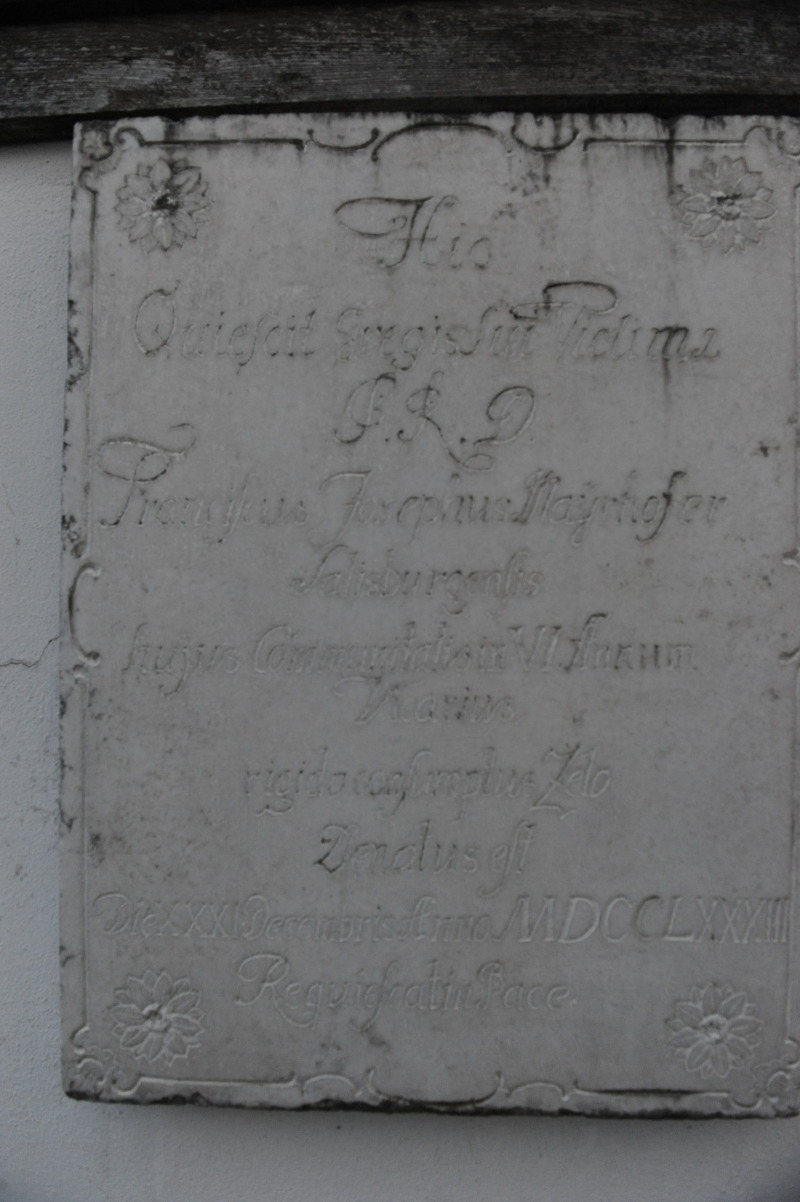 Hic
Quiescit Gregis sui Victima
P. R. D.
Franciscus Josephus Mayrhofer
Salisburgensis
hujus Communitatis in VI. Annum
Vicarius
rigido consumptus Zelo
Denatus est
Die XXXI Decembris Anno MDCCLXXXIII
Requiescat in Pace.